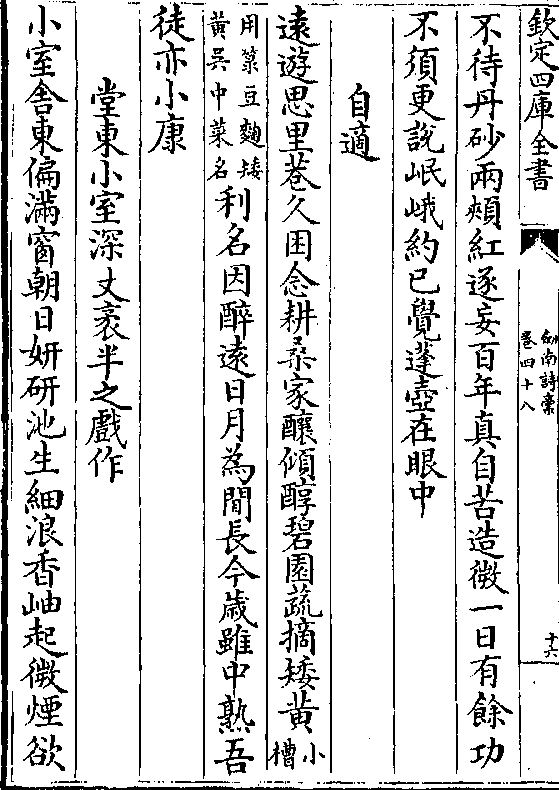 欽定四庫全書
劍南詩稾
卷四十八
十六
不待丹砂兩頰紅逐妄百年真自苦造微一日有餘功
不須更說岷峨約已覺蓬壺在眼中
自適
遠遊思里巷久困念耕桑家釀傾醇碧園蔬摘矮黃小槽
用箓豆麯矮
黃吳中菜名利名因醉遠日月為閒長今歲雖中熟吾
徒亦小康
堂東小室深丈袤半之戲作
小室舍東偏滿窗朝日妍研池生細浪香岫起微煙欲